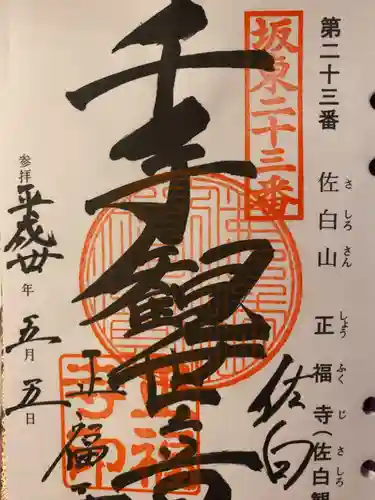 第二十三番 佐白山 正福寺(佐白観
さ しろ さん しょう ふく じ さしろ
坂東二十三番
佐白
千手観世音
正福寺印
正福
参拝 平成卅年 五月五日